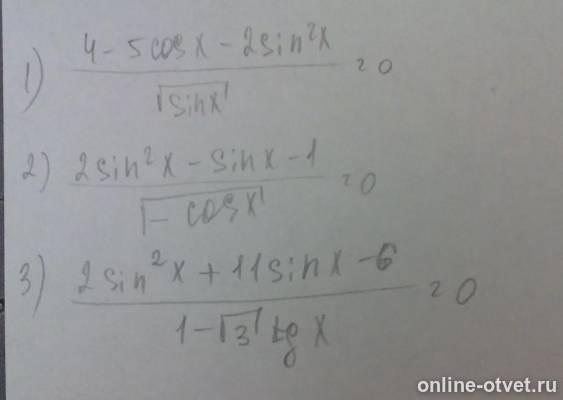 1) (4 - 5cosx - 2sin²x) / √sinx = 0
2) (2sin²x - sinx - 1) / √-cosx = 0
3) (2sin²x + 11sinx - 6) / (1 - √3 tgx) = 0
online-otvet.ru